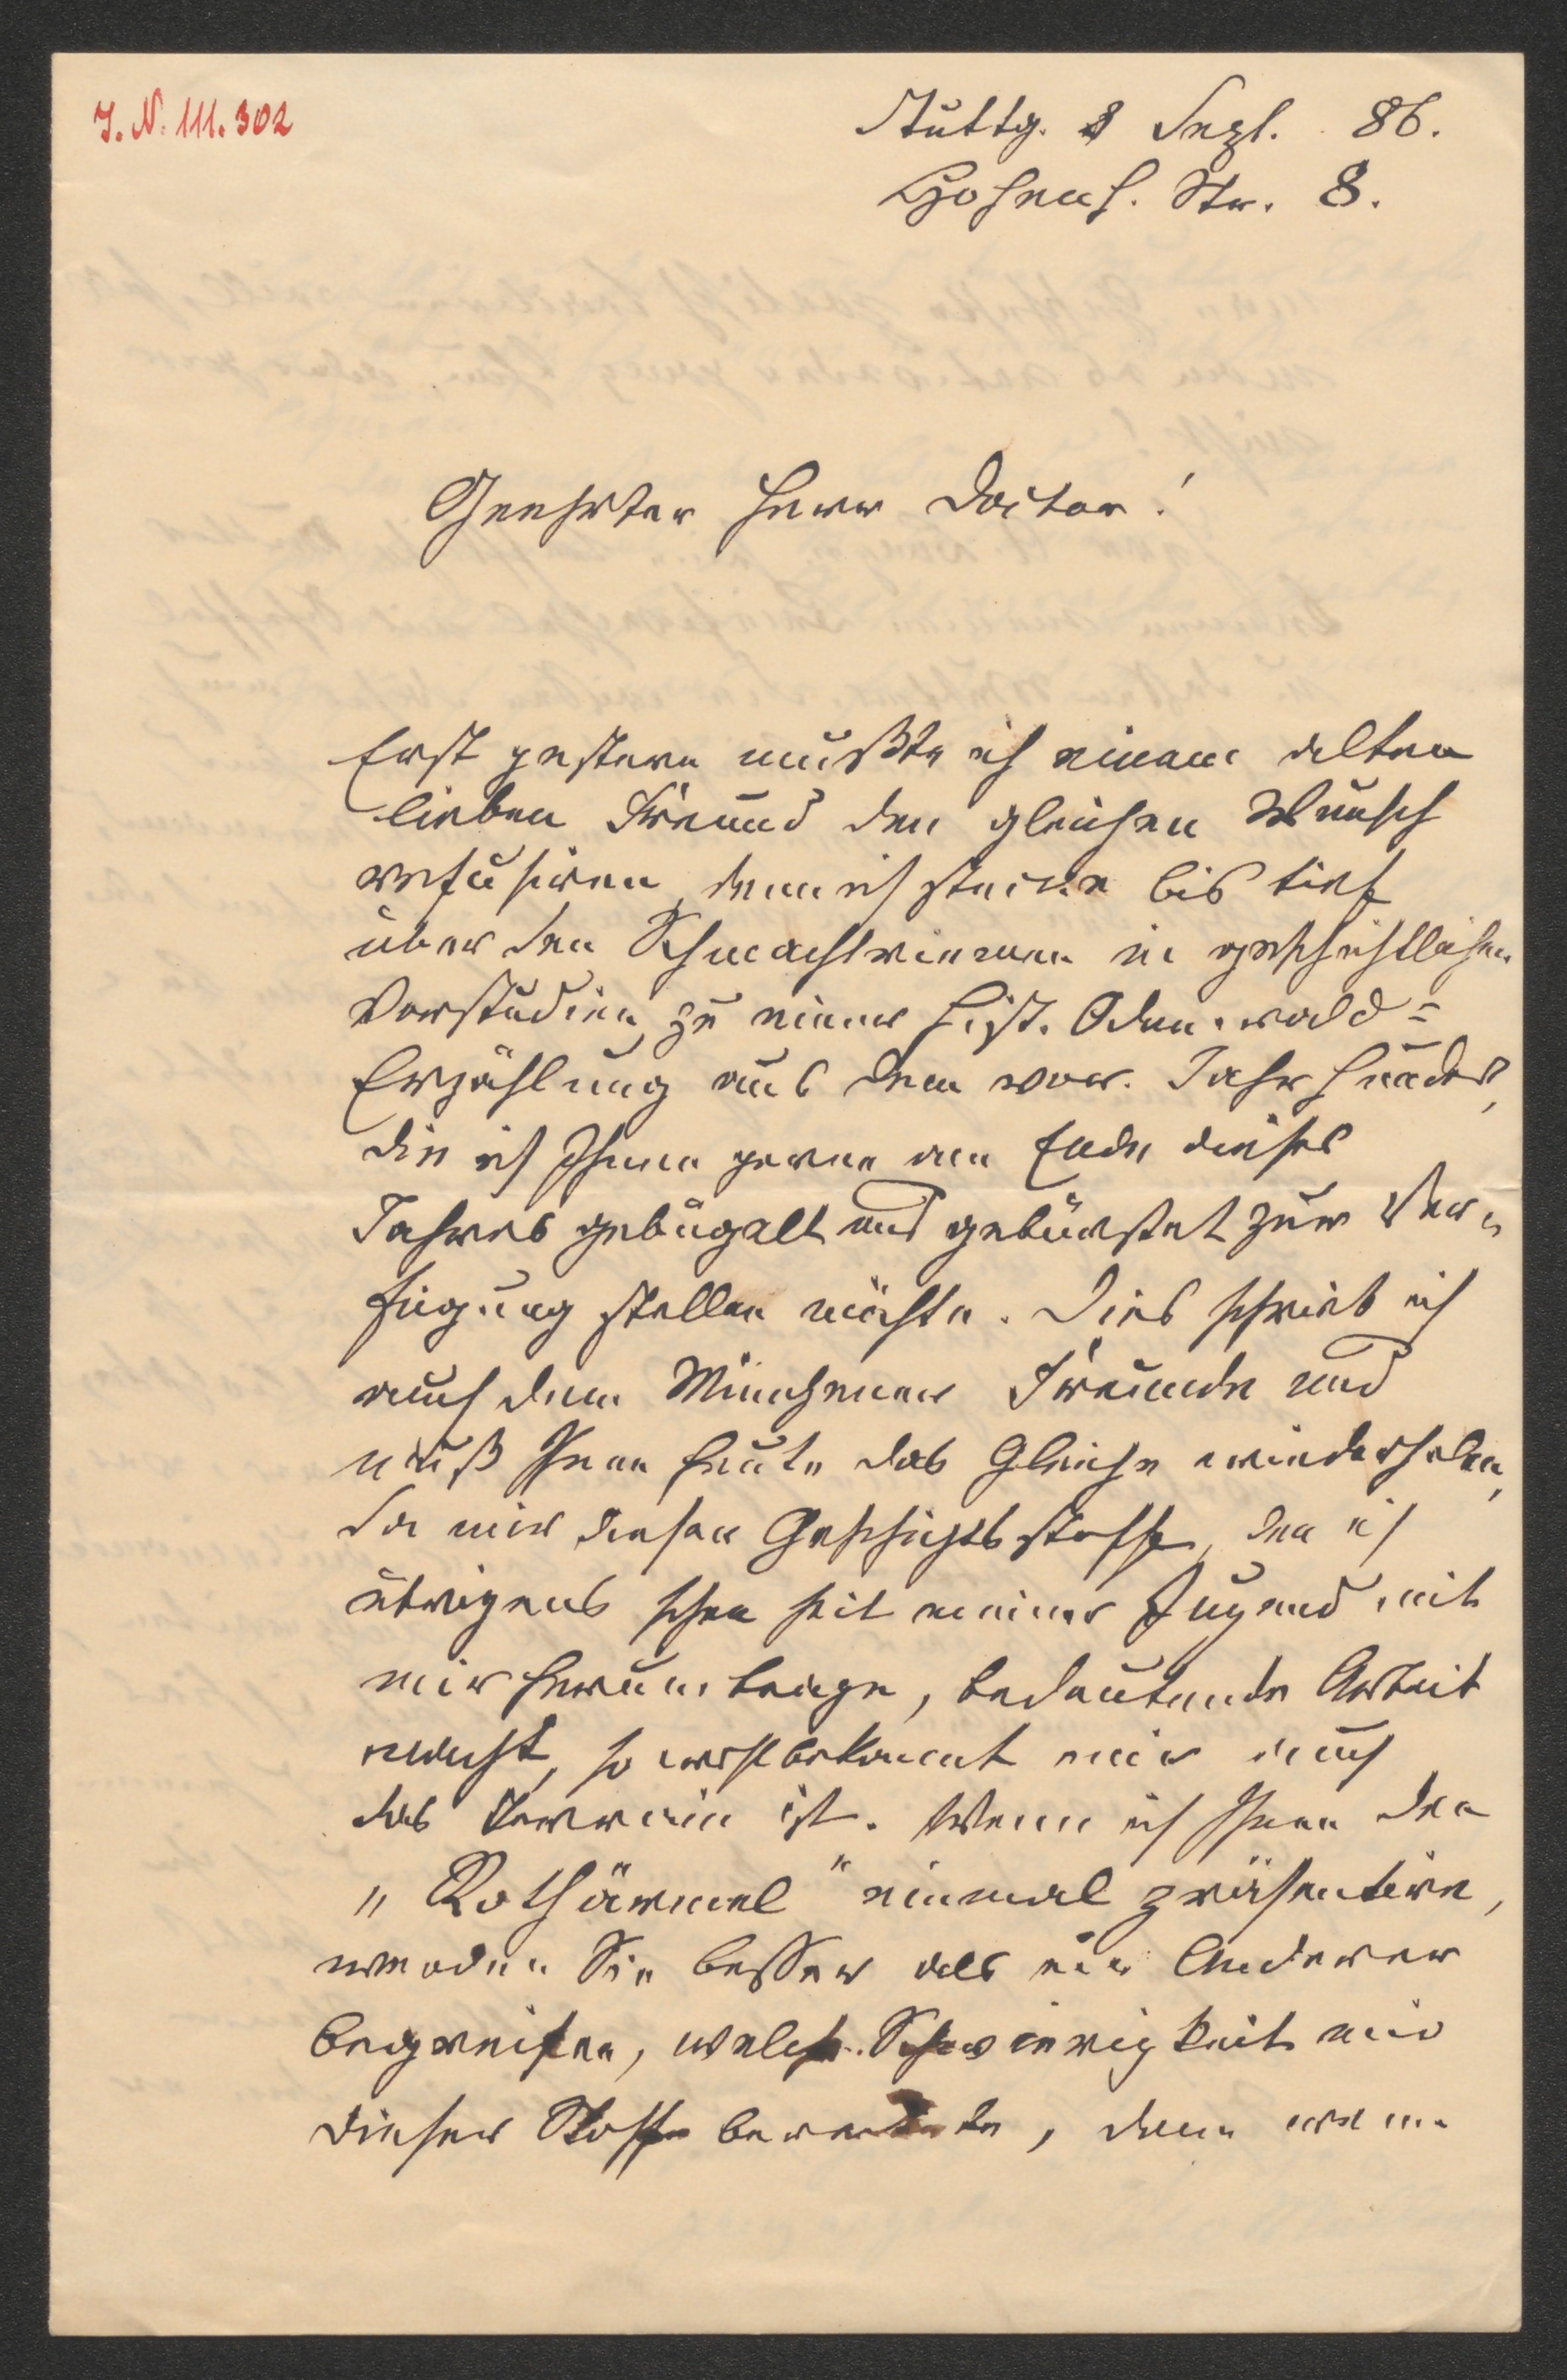 I. N. 111.302
Stuttg. 8 Sept. 86.
Hohenh. Str. 8.
Geehrter Herr Doctor!
Erst gestern mußte ich einem alten
lieben Freund den gleichen Wunsch
refusiren, denn ich stecke bis tief
über den Schmachtriemen in geschichtlichen
Vorstudien zu einer hist. Odenwald=
Erzählung aus dem vor. Jahrhundert,
die ich Ihnen gerne am Ende dieses
Jahres gebügelt und gebürstet zur Ver=
fügung stellen möchte. Dies schrieb ich
auch dem Münchener Freunde und
muß Ihnen heute das Gleiche wiederholen,
da mir dieser Geschichtsstoff, den ich
übrigens schon seit meiner Jugend mit
mir herumtrage, bedeutende Arbeit
macht, so wohlbekannt mir auch
das Terrain ist. Wenn ich Ihnen den
„Rothärmel" einmal präsentire,
werden Sie besser als ein Anderer
begreifen, welche Schwierigkeit mir
dieser Stoff bereitete, denn wenn